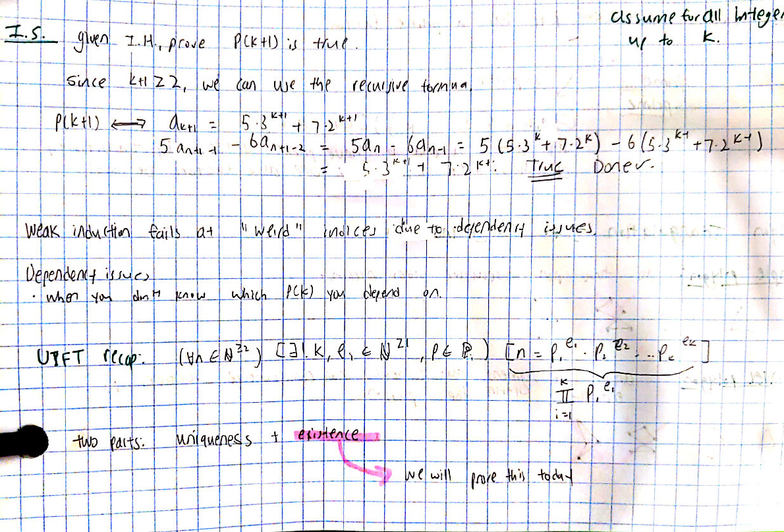 assume for all integer
up to k.
I.S. given I.H., prove P(k+1) is true.
since k+1 ≥ 2, we can use the recursive formua.
P(k+1) ⟷ a_{k+1} = 5·3^{k+1} + 7·2^{k+1}
5a_{n+1-1} - 6a_{n+1-2} = 5a_n - 6a_{n-1} = 5(5·3^k + 7·2^k) - 6(5·3^{k-1} + 7·2^{k-1})
= 5·3^{k+1} + 7·2^{k+1}. True Done.
Weak induction fails at "weird" indices due to dependency issues.
Dependency issues
· when you don't know which P(k) you depend on.
UPFT recap: (∀n ∈ ℕ^{≥2}) [∃!. k, e_i ∈ ℕ^{≥1}, p ∈ ℙ.) [n = p_1^{e_1} · p_2^{e_2} ... p_k^{e_k}]
∏_{i=1}^{k} p_i^{e_i}
two parts: uniqueness + existence
we will prove this today